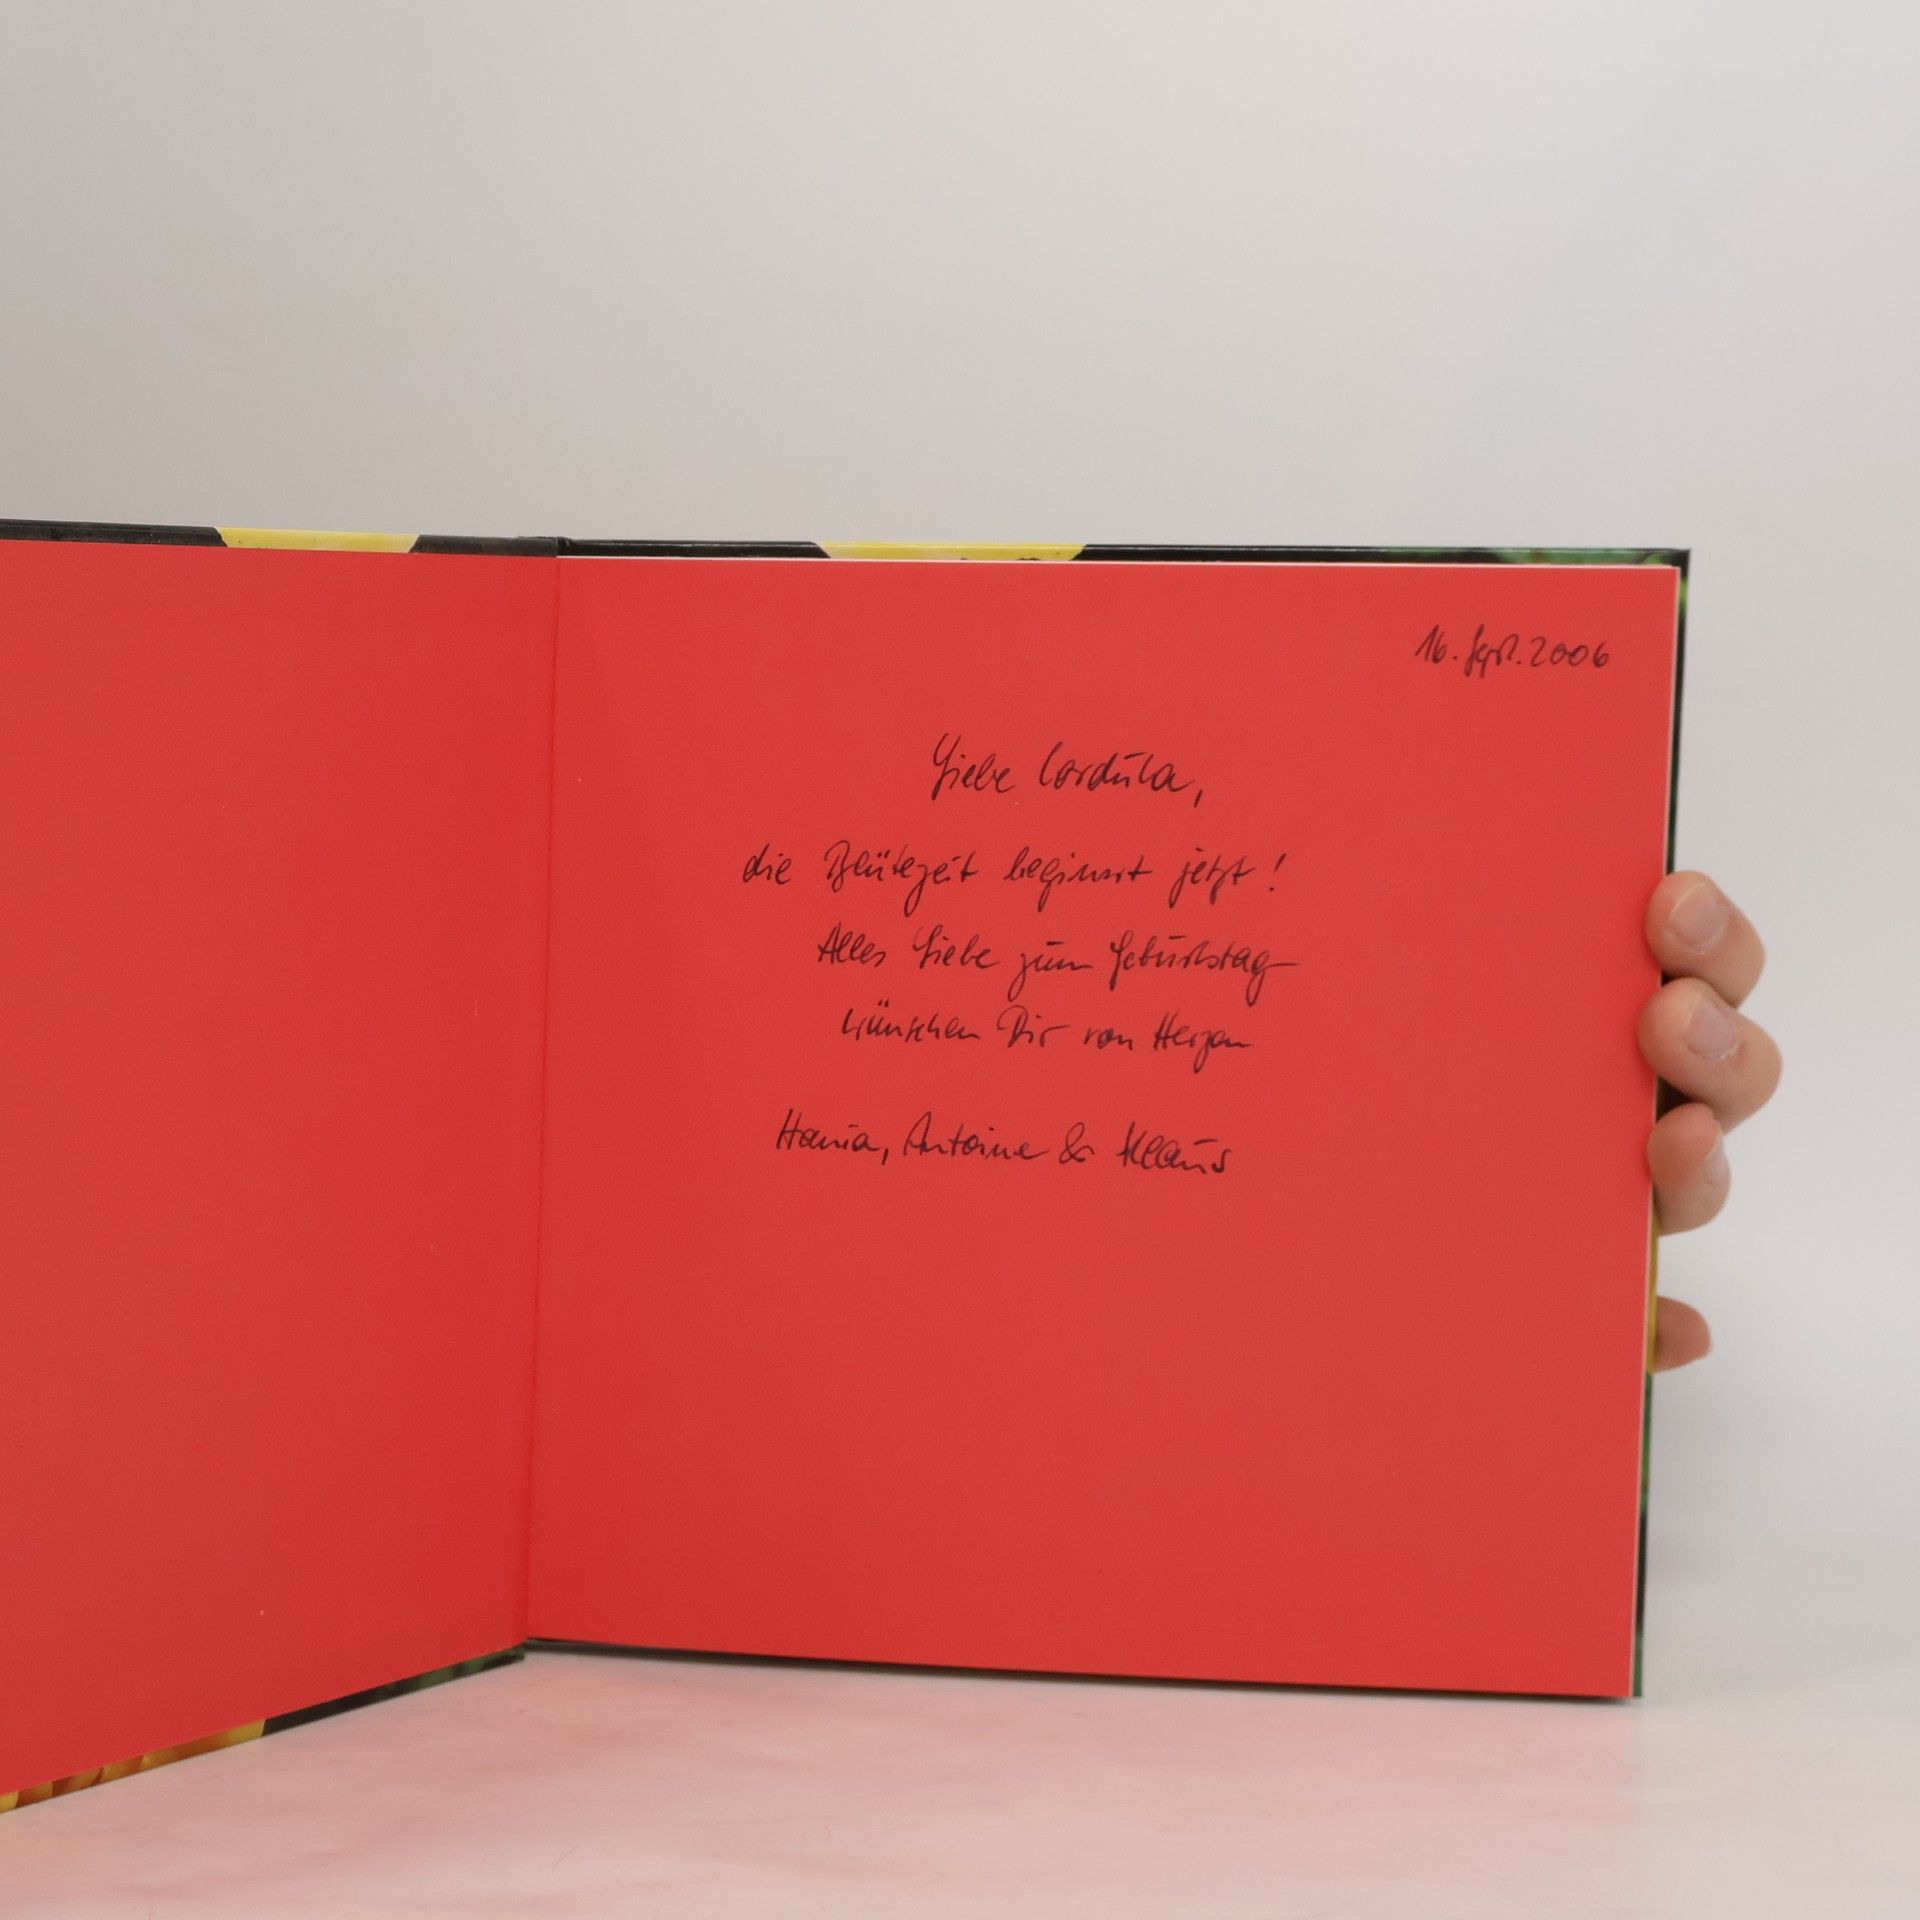 16. Sept. 2006
Liebe Cordula,
die Blütezeit beginnt jetzt!
Alles Liebe zum Geburtstag
wünschen Dir von Herzen
Hania, Antoine & Klaus